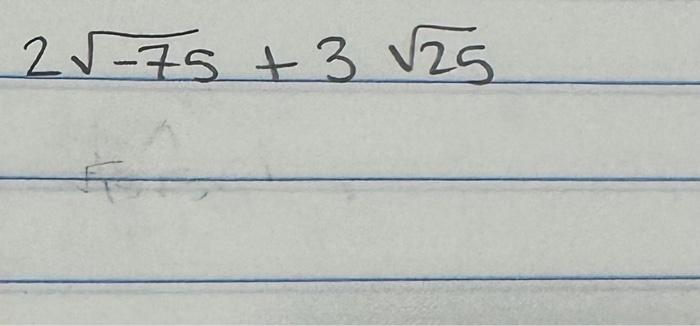 2√-75 + 3 √25